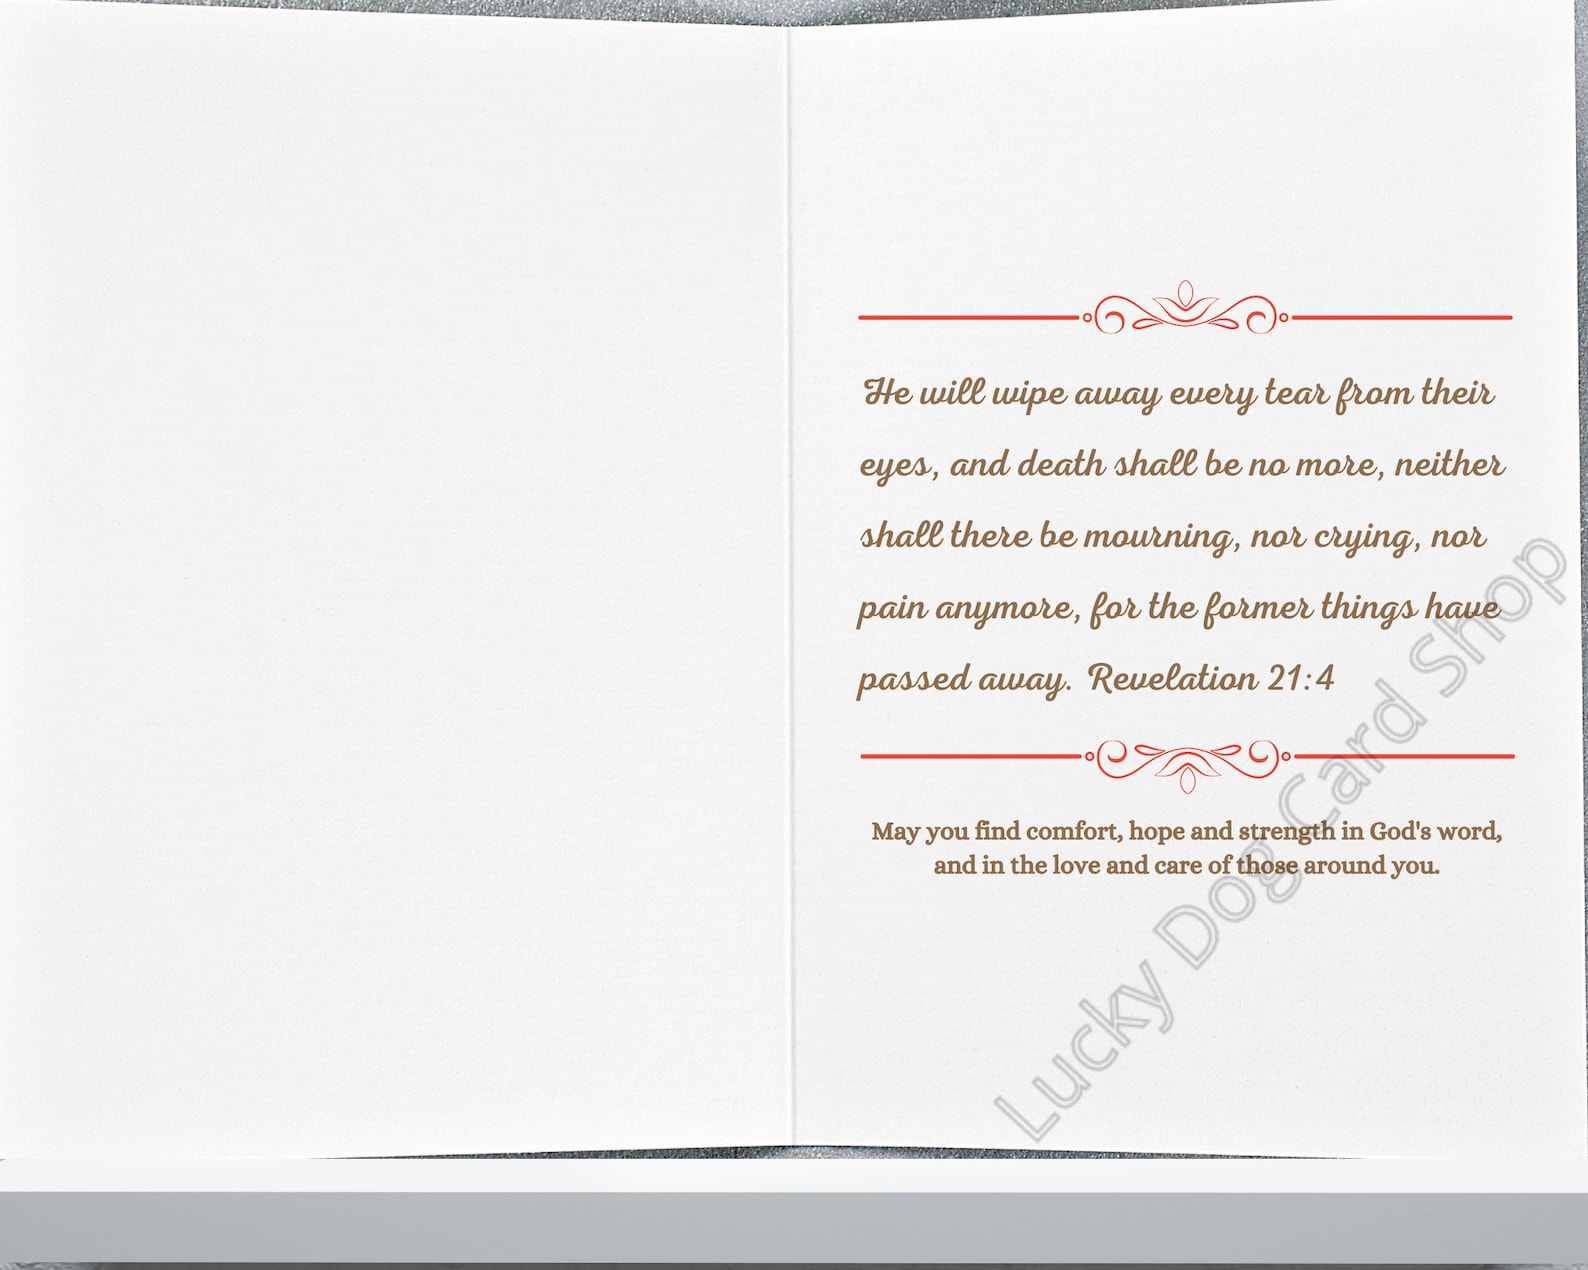 He will wipe away every tear from their
eyes, and death shall be no more, neither
shall there be mourning, nor crying, nor
pain anymore, for the former things have
passed away. Revelation 21:4
May you find comfort, hope and strength in God's word,
and in the love and care of those around you.
Lucky Dog Card Shop